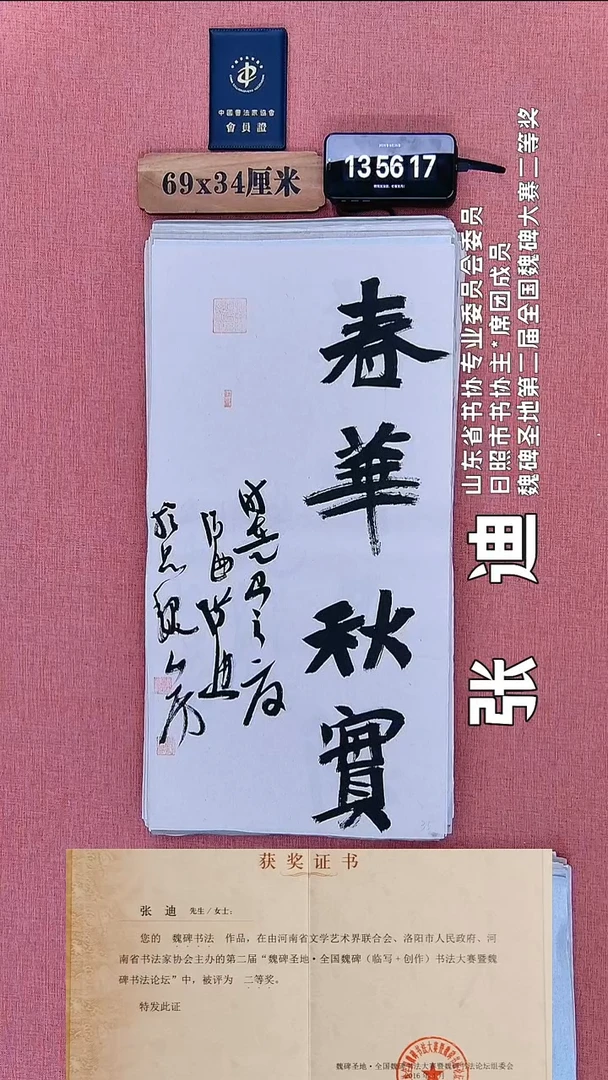 中國書法家協會
會員證
69x34厘米
13 56 17
春華秋實
山东省书协专业委员会委员
日照市书协主*席团成员
魏碑圣地第二届全国魏碑大赛二等奖
张 迪
获奖证书
张 迪 先生/女士:
您的 魏碑书法 作品,在由河南省文学艺术界联合会、洛阳市人民政府、河
南省书法家协会主办的第二届“魏碑圣地·全国魏碑(临写+创作)书法大赛暨魏
碑书法论坛”中,被评为 二等奖。
特发此证
魏碑圣地·全国魏碑书法大赛暨魏碑书法论坛组委会